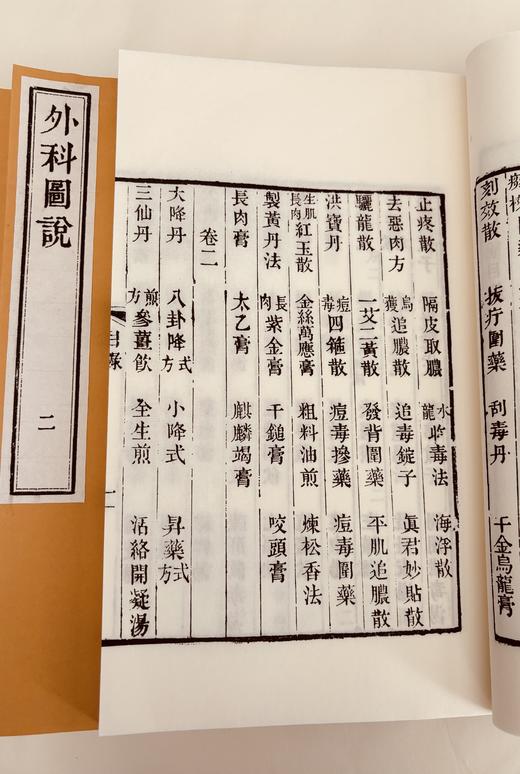 外科圖說 二
刻效散 拔疔圍藥 刮毒丹 千金烏龍膏
止疼散 隔皮取膿 水龍 毒法 海浮散
去惡肉方 烏獲追膿散 追毒錠子 眞君妙貼散
驪龍散 一艾二黃散 發背圍藥 平肌追膿散
洪寶丹 痘毒四箍散 痘毒摻藥 痘毒圍藥
生肌長肉紅玉散 金絲萬應膏 粗料油煎 煉松香法
製黃丹法 長肉紫金膏 千鎚膏 咬頭膏
長肉膏 太乙膏 麒麟竭膏
卷二
大降丹 八卦降式方 小降式 昇藥式方
三仙丹 煎方參薑飮 全生煎 活絡開凝湯
目錄 一